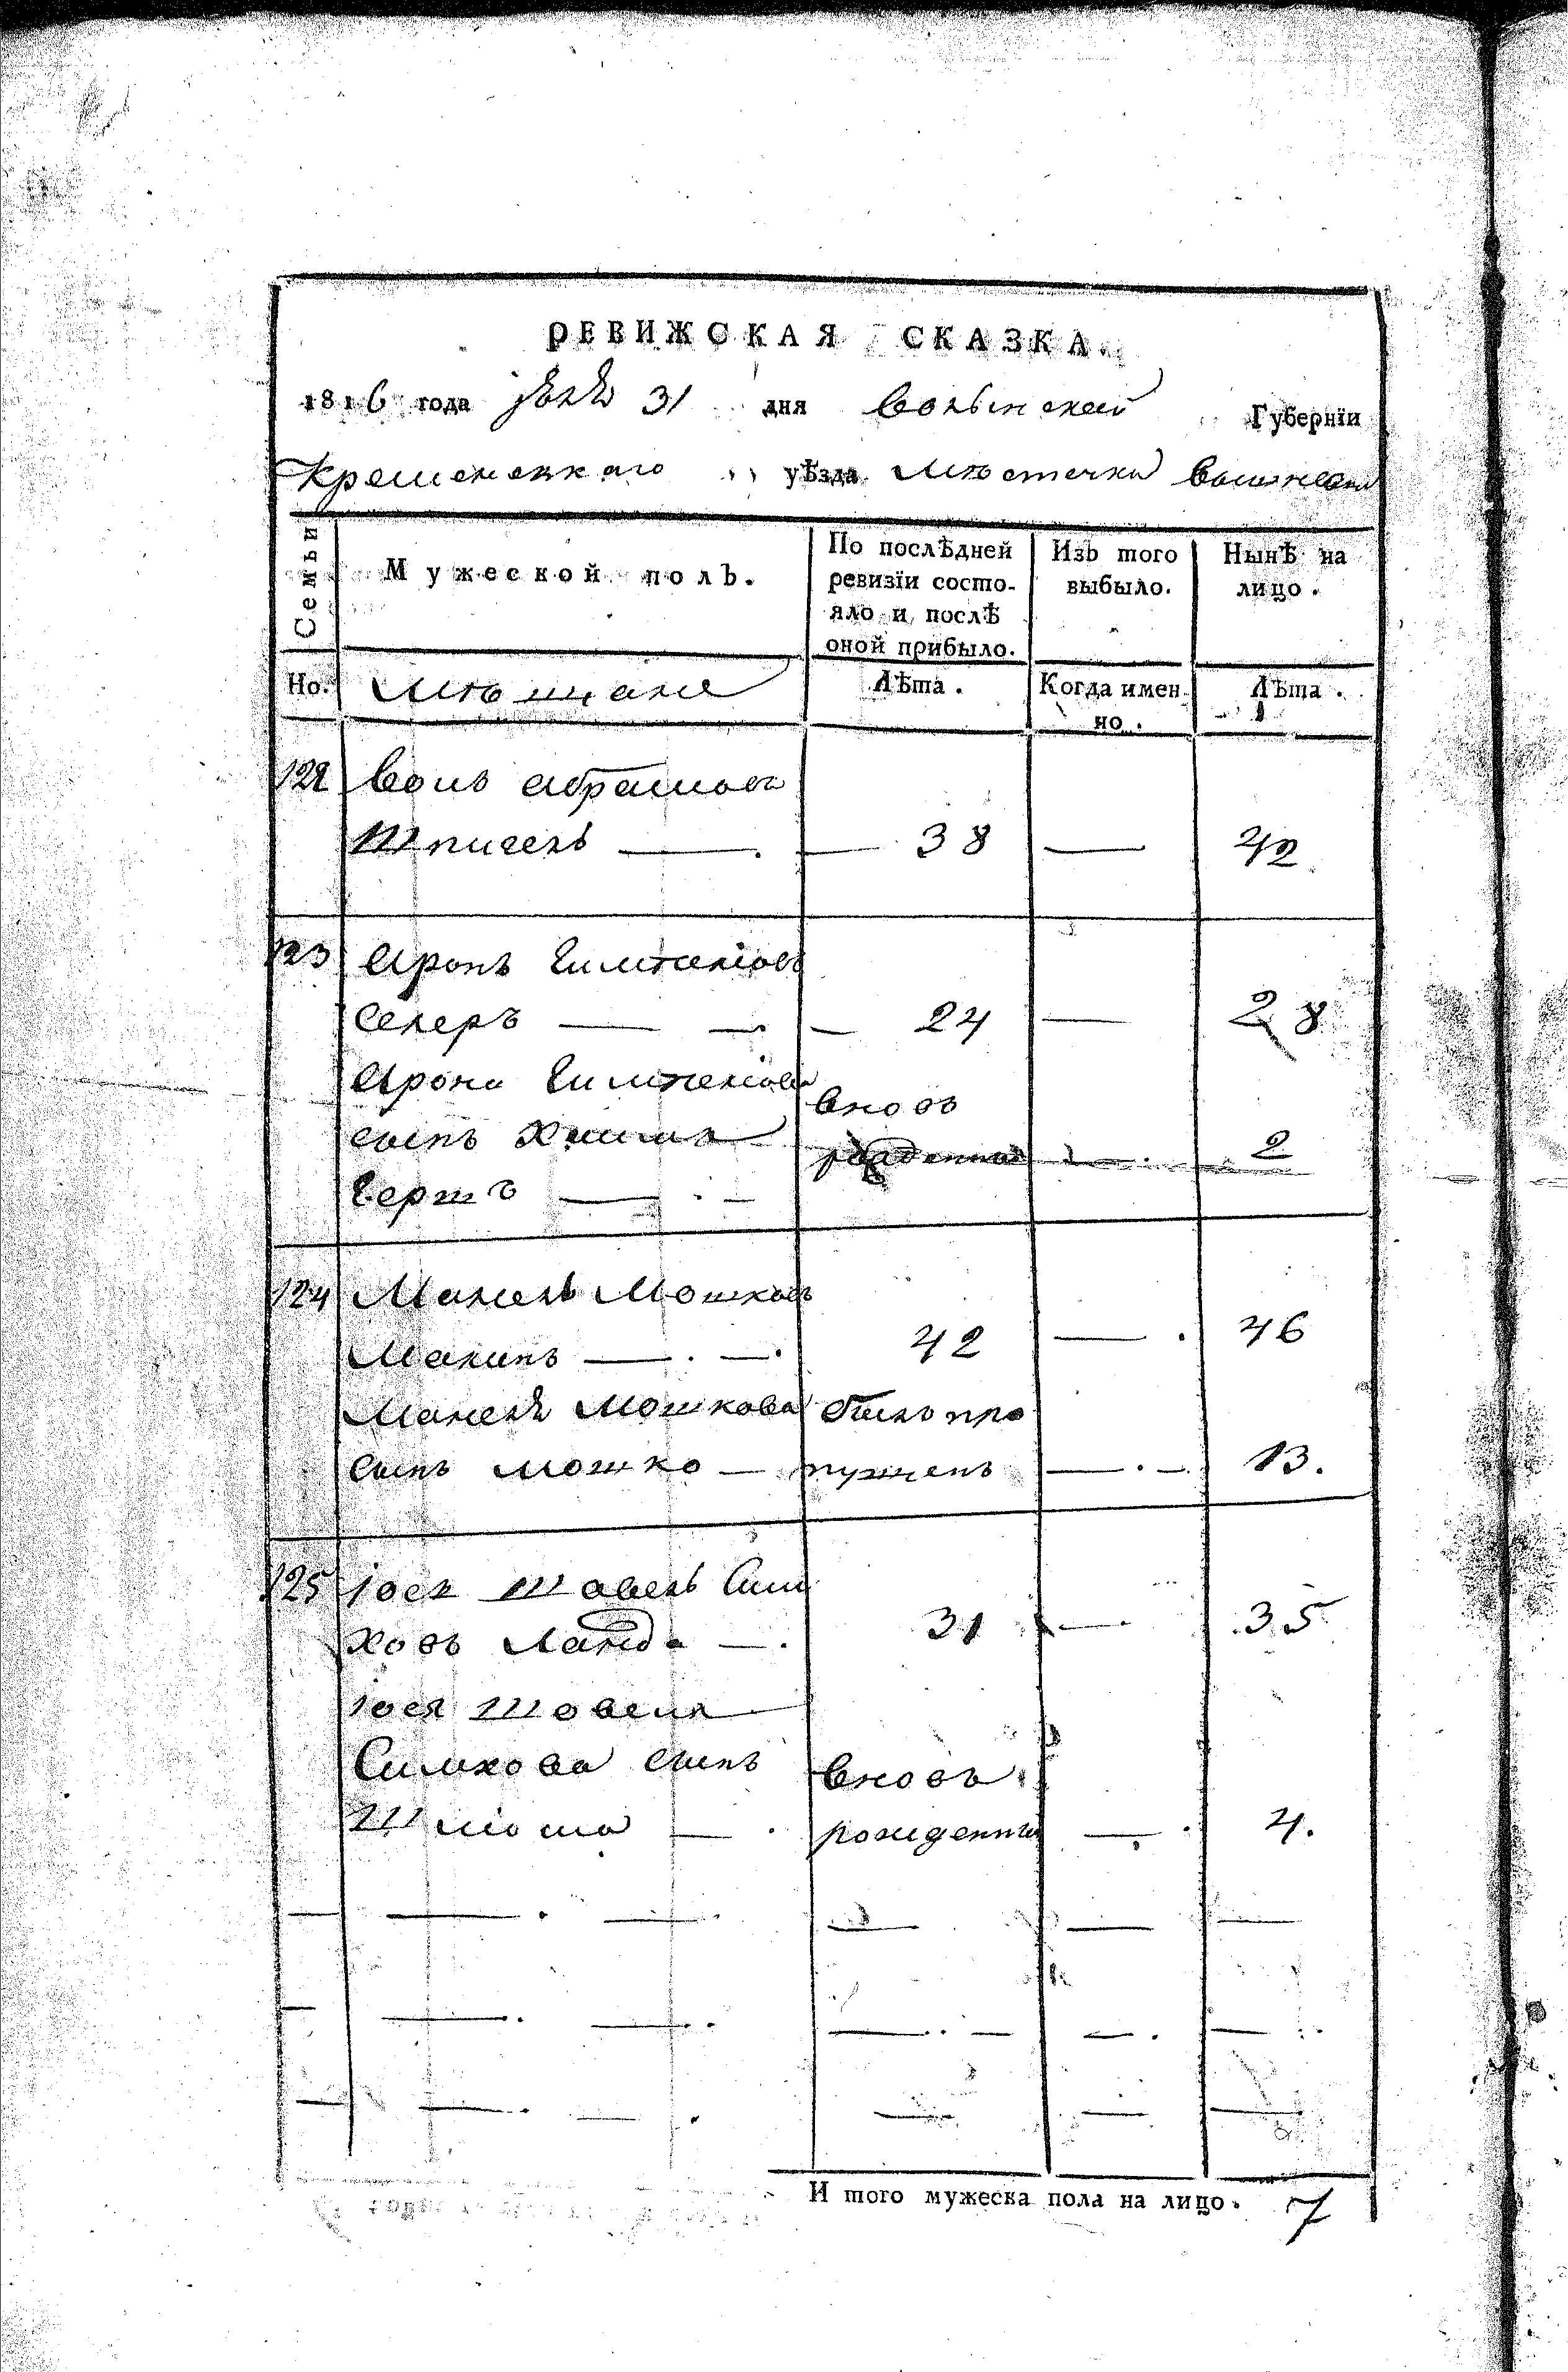 РЕВИЖСКАЯ СКАЗКА.
1816 года Июля 31 дня Волынской Губернїи
Кременецкаго уѣзда Мѣстечка Вишневца
Семьи
Мужеской полъ.
По послѣдней ревизїи состояло и послѣ оной прибыло.
Изъ того выбыло.
Нынѣ на лицо.
Но.
Мѣщане
Лѣта.
Когда именно.
Лѣта.
122 Волъ Абрамовъ
Шпигель — 38 — 42
123 Аронъ
Селеръ — 24 — 28
Арона
вновь
сынъ Хаимъ
рожденный — 2
Гершъ —
124 Манель Мошковъ
— 42 — 46
Манеля Мошкова былъ про
сынъ Мошко — пущенъ — 13.
125 Іосъ Шовель Сим
ховъ Ланда — 31 — 35
Іося Шовеля
Симхова сынъ вновь
рожденный — 4.
И того мужеска пола на лицо. 7